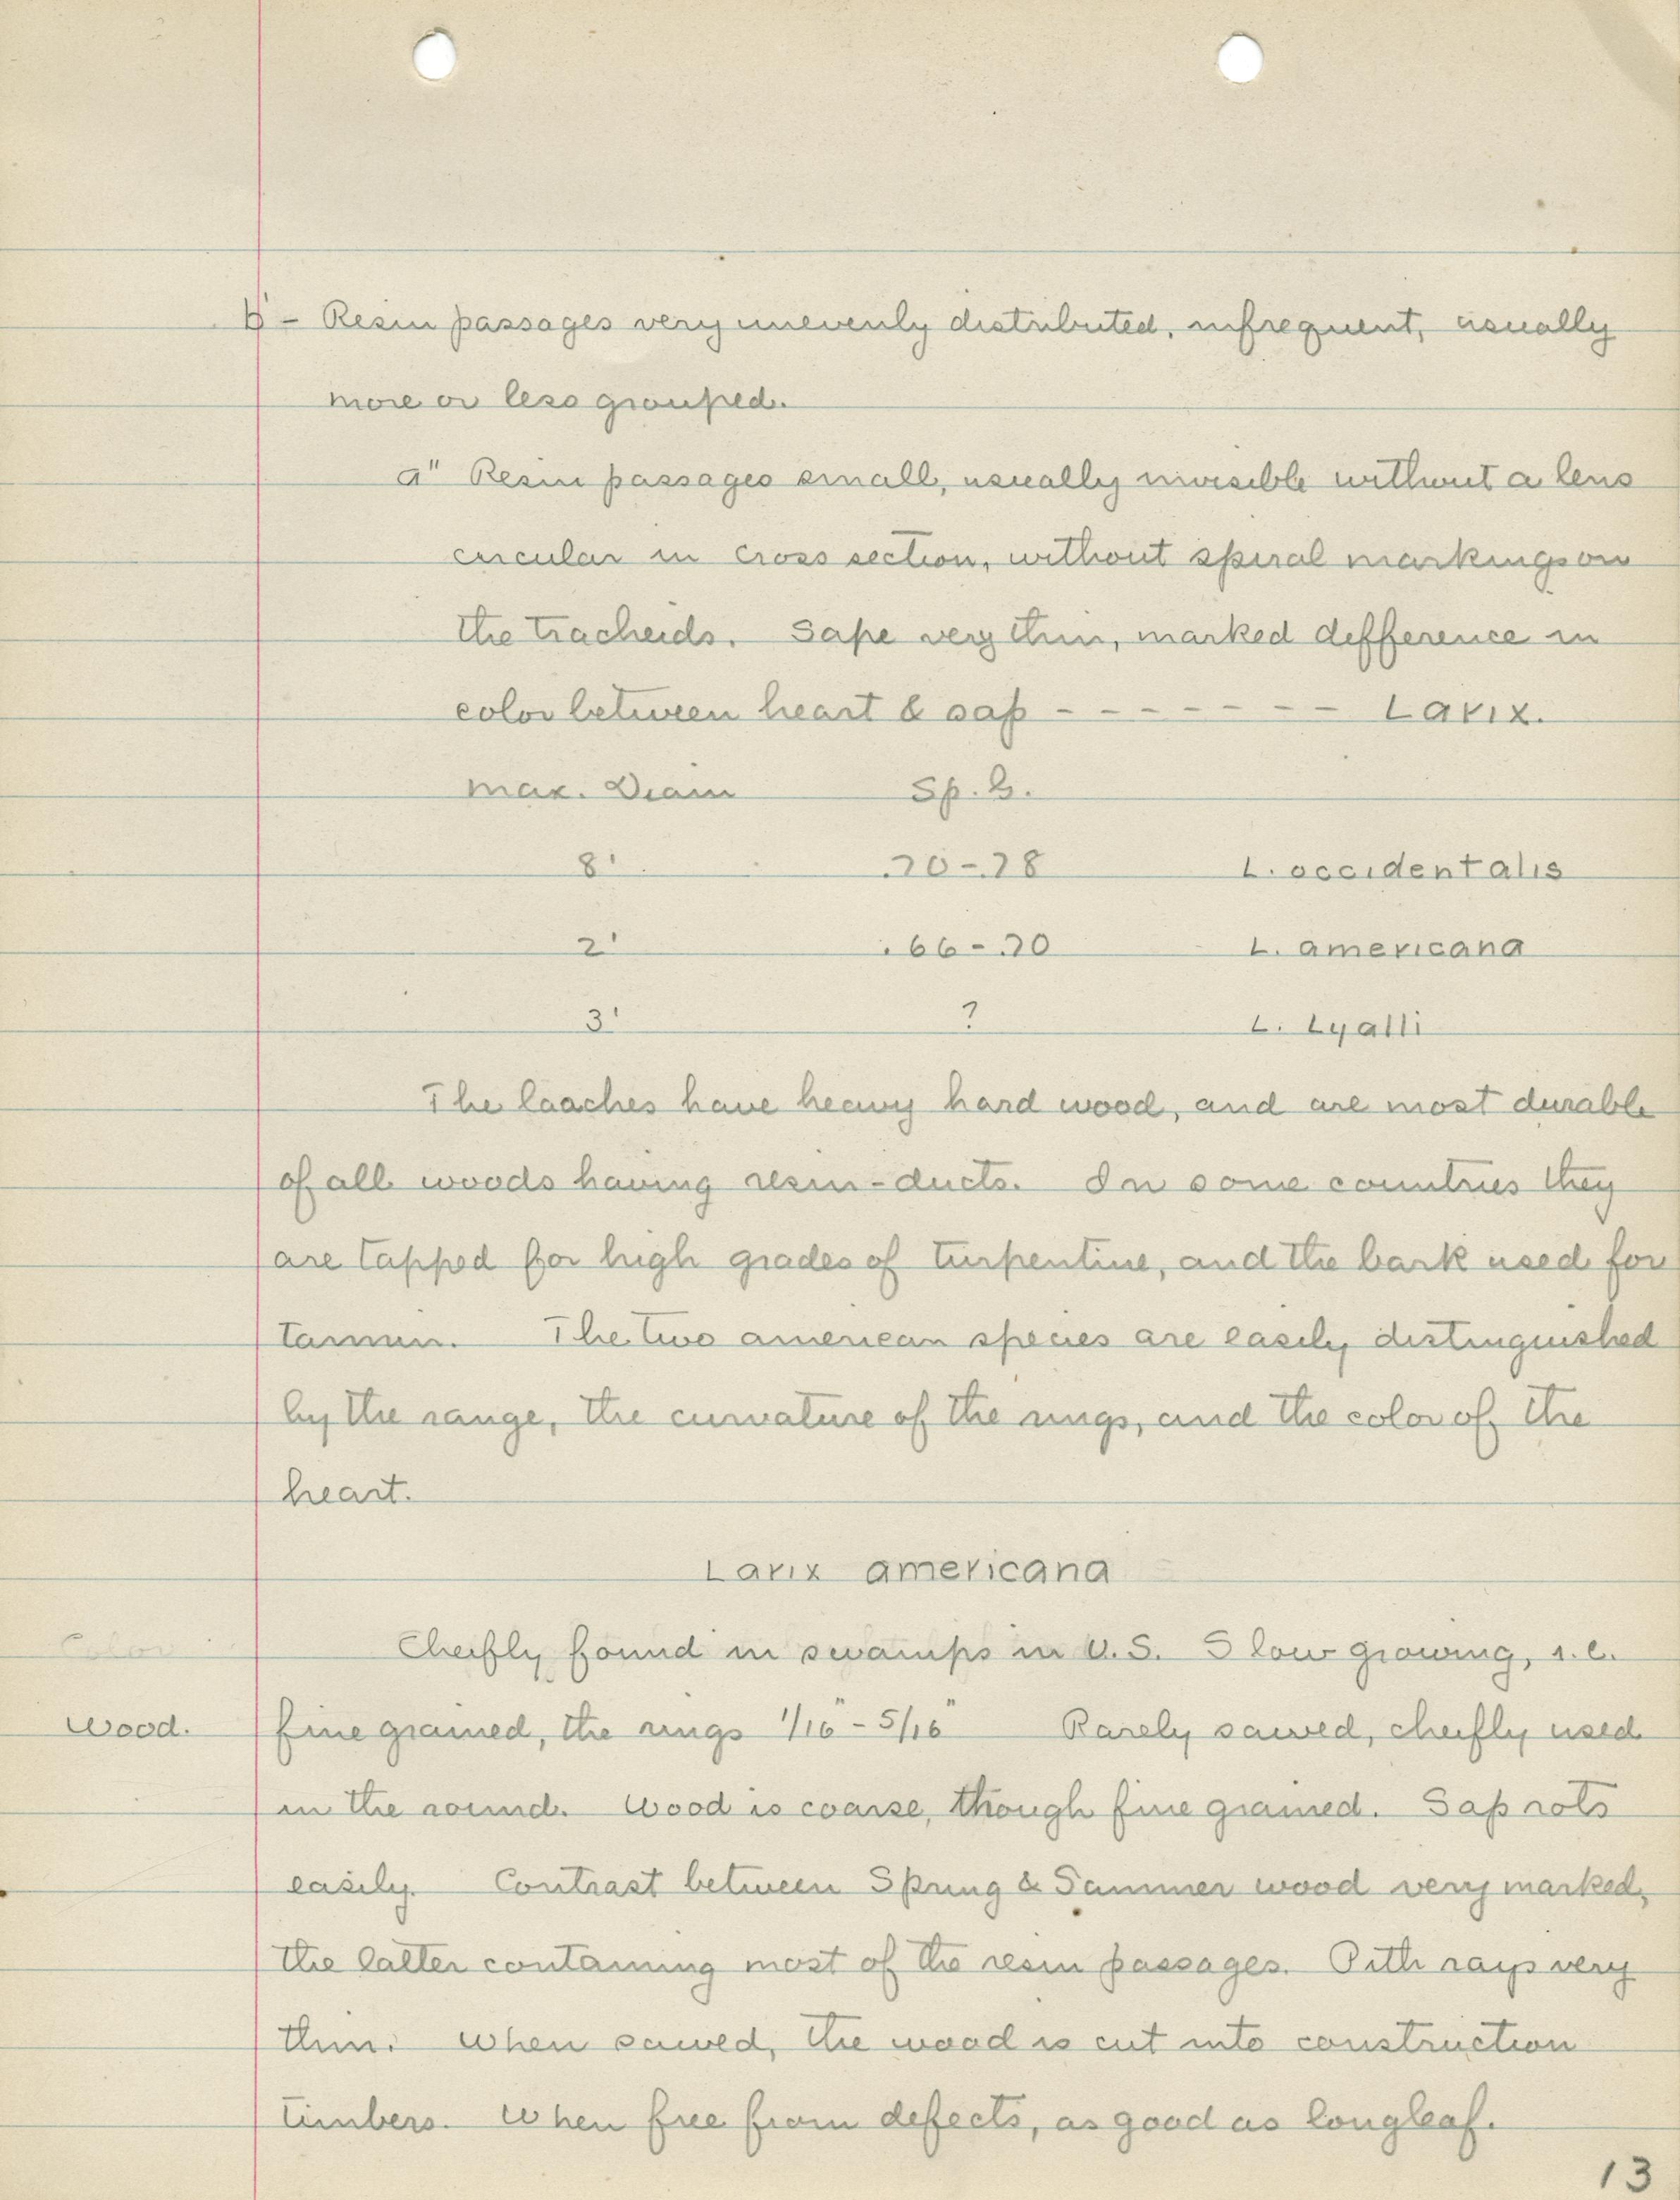 b' - Resin passages very unevenly distributed, infrequent, usually
more or less grouped.
a" Resin passages small, usually invisible without a lens
circular in cross section, without spiral markings on
the tracheids. Sape very thin, marked defference in
color between heart & sap - - - - - - - Larix.
max. Diam Sp. G.
8' .70-.78 L. occidentalis
2' .66-.70 L. americana
3' ? L. Lyalli
The laaches have heavy hard wood, and are most durable
of all woods having resin-ducts. In some countries they
are tapped for high grades of turpentine, and the bark used for
tannin. The two american species are easily distinguished
by the range, the curvature of the rings, and the color of the
heart.
Larix americana
Color
Cheifly found in swamps in U.S. Slow growing, i.e.
Wood. fine grained, the rings 1/16" - 5/16" Rarely sawed, cheifly used
in the round. Wood is coarse, though fine grained. Sap rots
easily. Contrast between Spring & Summer wood very marked,
the latter containing most of the resin passages. Pith rays very
thin. When sawed, the wood is cut into construction
timbers. When free from defects, as good as longleaf.
13